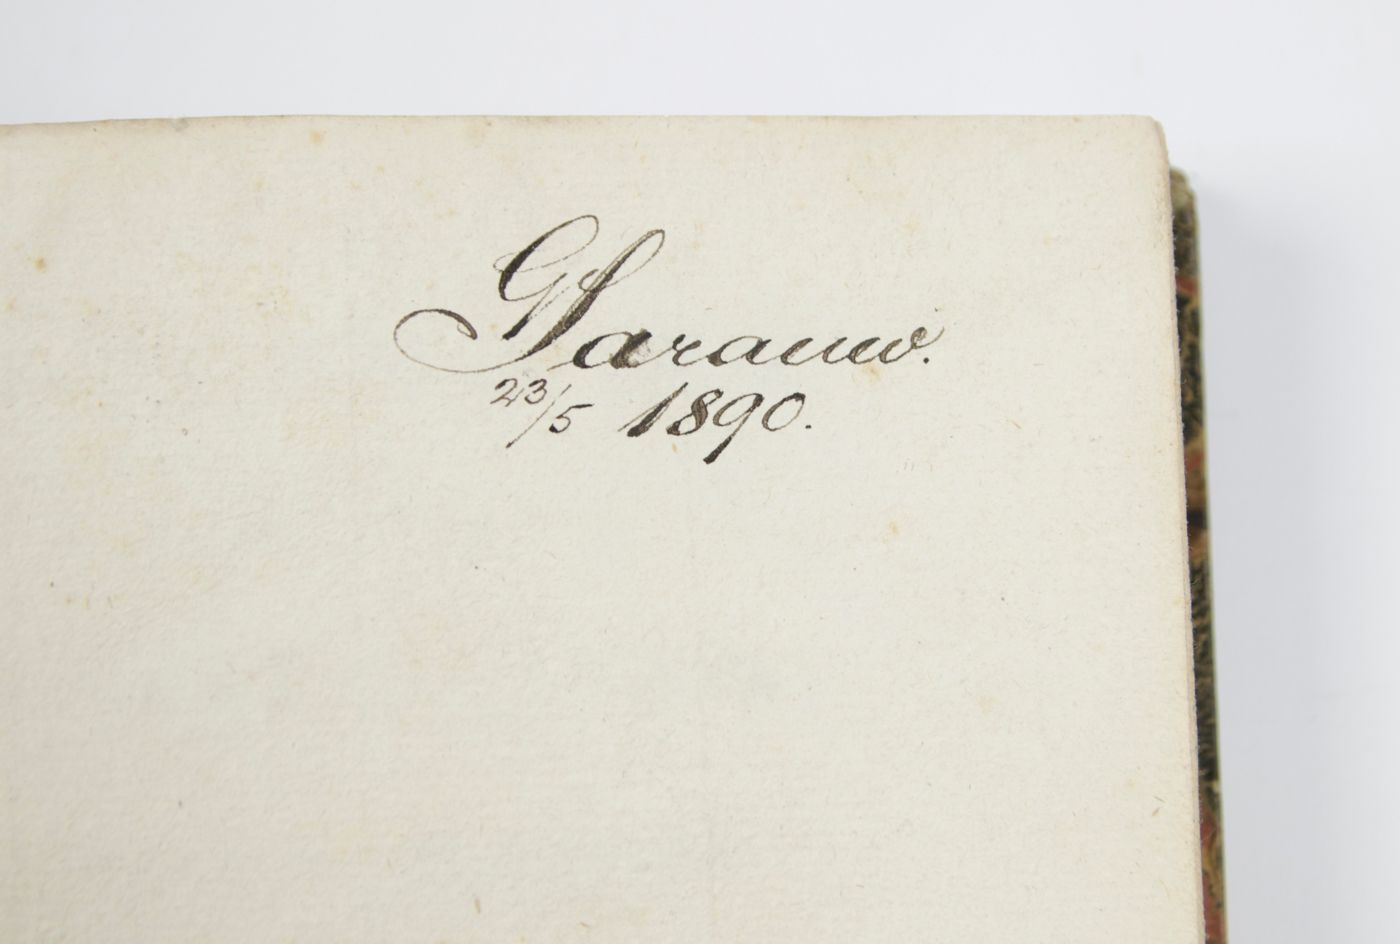 GSarauw.
23/5 1890.